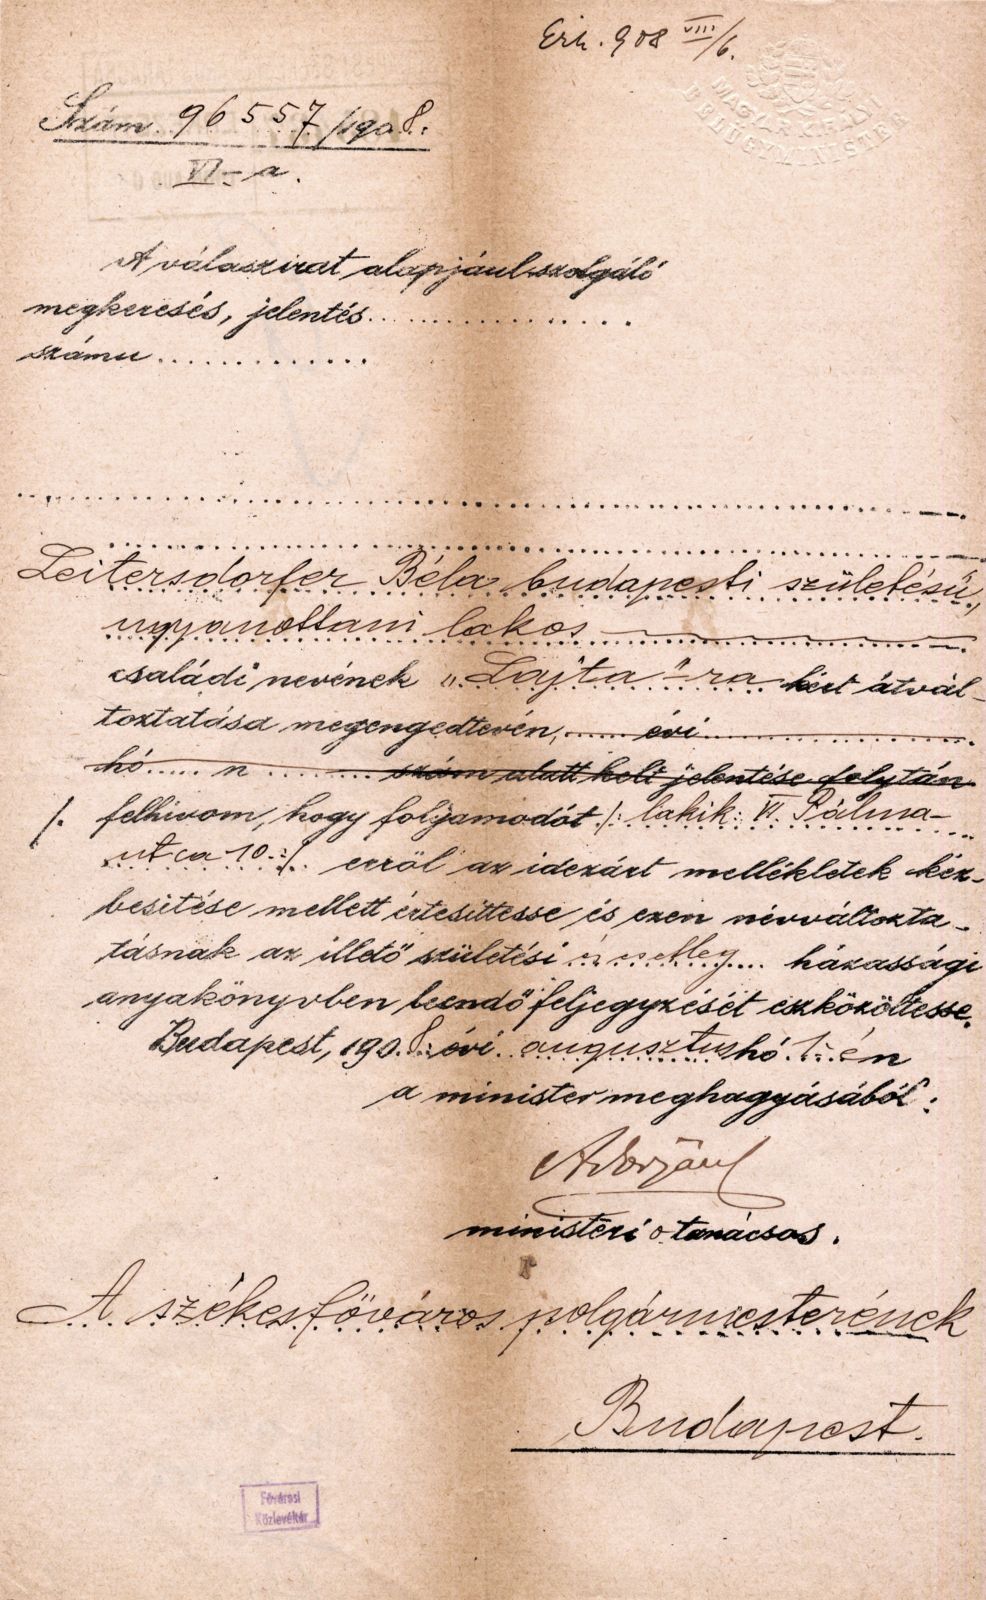 Érk. 908 VIII/6.
MAGYAR KIRÁLYI
BELÜGYMINISTER
Szám 96557/1908.
VI-a.
A válaszirat alapjául szolgáló
megkeresés, jelentés..................
számu..............
Leitersdorfer Béla budapesti születésü,
ugyanottani lakos
családi nevének „Lajta"-ra kért átvál-
toztatása megengedtetvén, ...... évi
hó..... n ........ szám alatt kelt jelentése folytán
/. felhivom, hogy folyamodót /: lakik: VI. Pálma-
utca 10. :/ erről az idezárt mellékletek kéz-
besitése mellett értesittesse és ezen névváltozta-
tásnak az illető születési és esetleg .... házassági
anyakönyvben leendő feljegyzését eszközöltesse.
Budapest, 1908. évi augusztus hó 1-én
a minister meghagyásából:
ministeri o. tanácsos.
A székesfőváros polgármesterének
Budapest.
Fővárosi
Közlevéltár